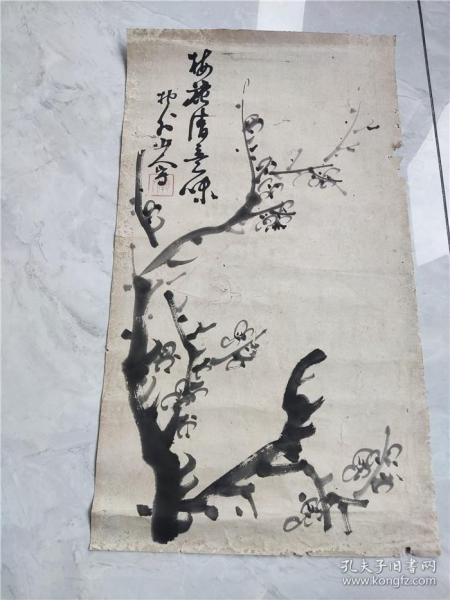 梅花清意味
山人写
孔夫子旧书网
www.kongfz.com